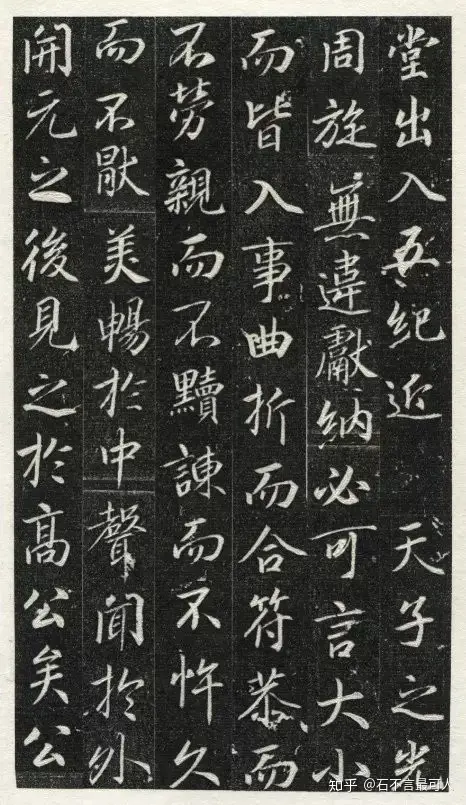 堂出入五紀近天子之光
周旋無違獻納必可言大小
而皆入事曲折而合符恭而
不勞親而不黷諫而不忤久
而不猒美暢於中聲聞於外
開元之後見之於高公矣公
知乎 @石不言最可人